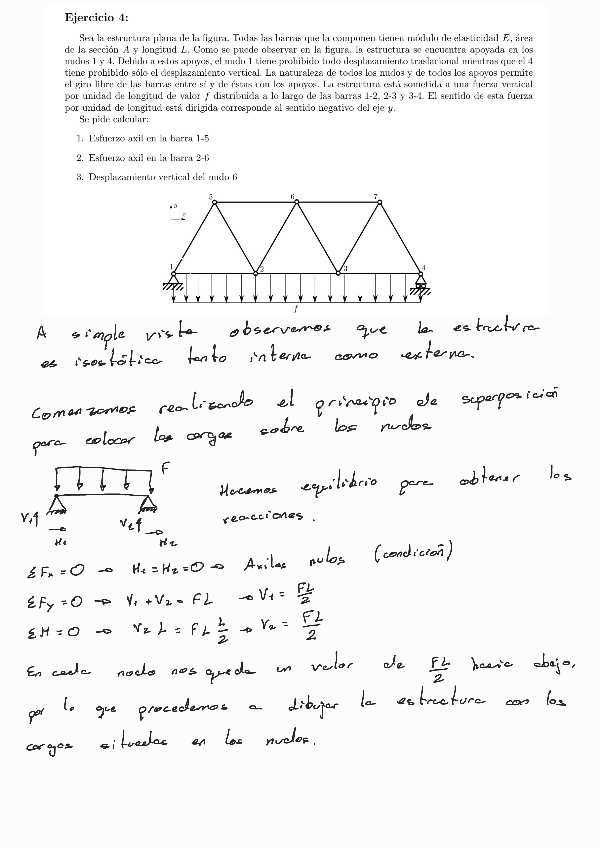 Ejercicio 4:
Sea la estructura plana de la figura. Todas las barras que la componen tienen módulo de elasticidad E, área
de la sección A y longitud L. Como se puede observar en la figura, la estructura se encuentra apoyada en los
nudos 1 y 4. Debido a estos apoyos, el nudo 1 tiene prohibido todo desplazamiento traslacional mientras que el 4
tiene prohibido sólo el desplazamiento vertical. La naturaleza de todos los nudos y de todos los apoyos permite
el giro libre de las barras entre sí y de éstas con los apoyos. La estructura está sometida a una fuerza vertical
por unidad de longitud de valor f distribuida a lo largo de las barras 1-2, 2-3 y 3-4. El sentido de esta fuerza
por unidad de longitud está dirigida corresponde al sentido negativo del eje y.
Se pide calcular:
1. Esfuerzo axil en la barra 1-5
2. Esfuerzo axil en la barra 2-6
3. Desplazamiento vertical del nudo 6
5 6 7
y
x
1 2 3 4
f
A simple vista observamos que la estructura
es isostática tanto interna como externa.
Comenzamos realizando el principio de superposición
para colocar las cargas sobre los nudos
F
V1 V2
H1 H2
Hacemos equilibrio para obtener los
reacciones.
ΣFx = 0 → H1 = H2 = 0 → Axiles nulos (condición)
ΣFy = 0 → V1 + V2 = FL → V1 = FL/2
ΣM = 0 → V2 L = FL L/2 → V2 = FL/2
En cada nodo nos queda un valor de FL/2 hacia abajo,
por lo que procedemos a dibujar la estructura con los
cargas situadas en los nudos.